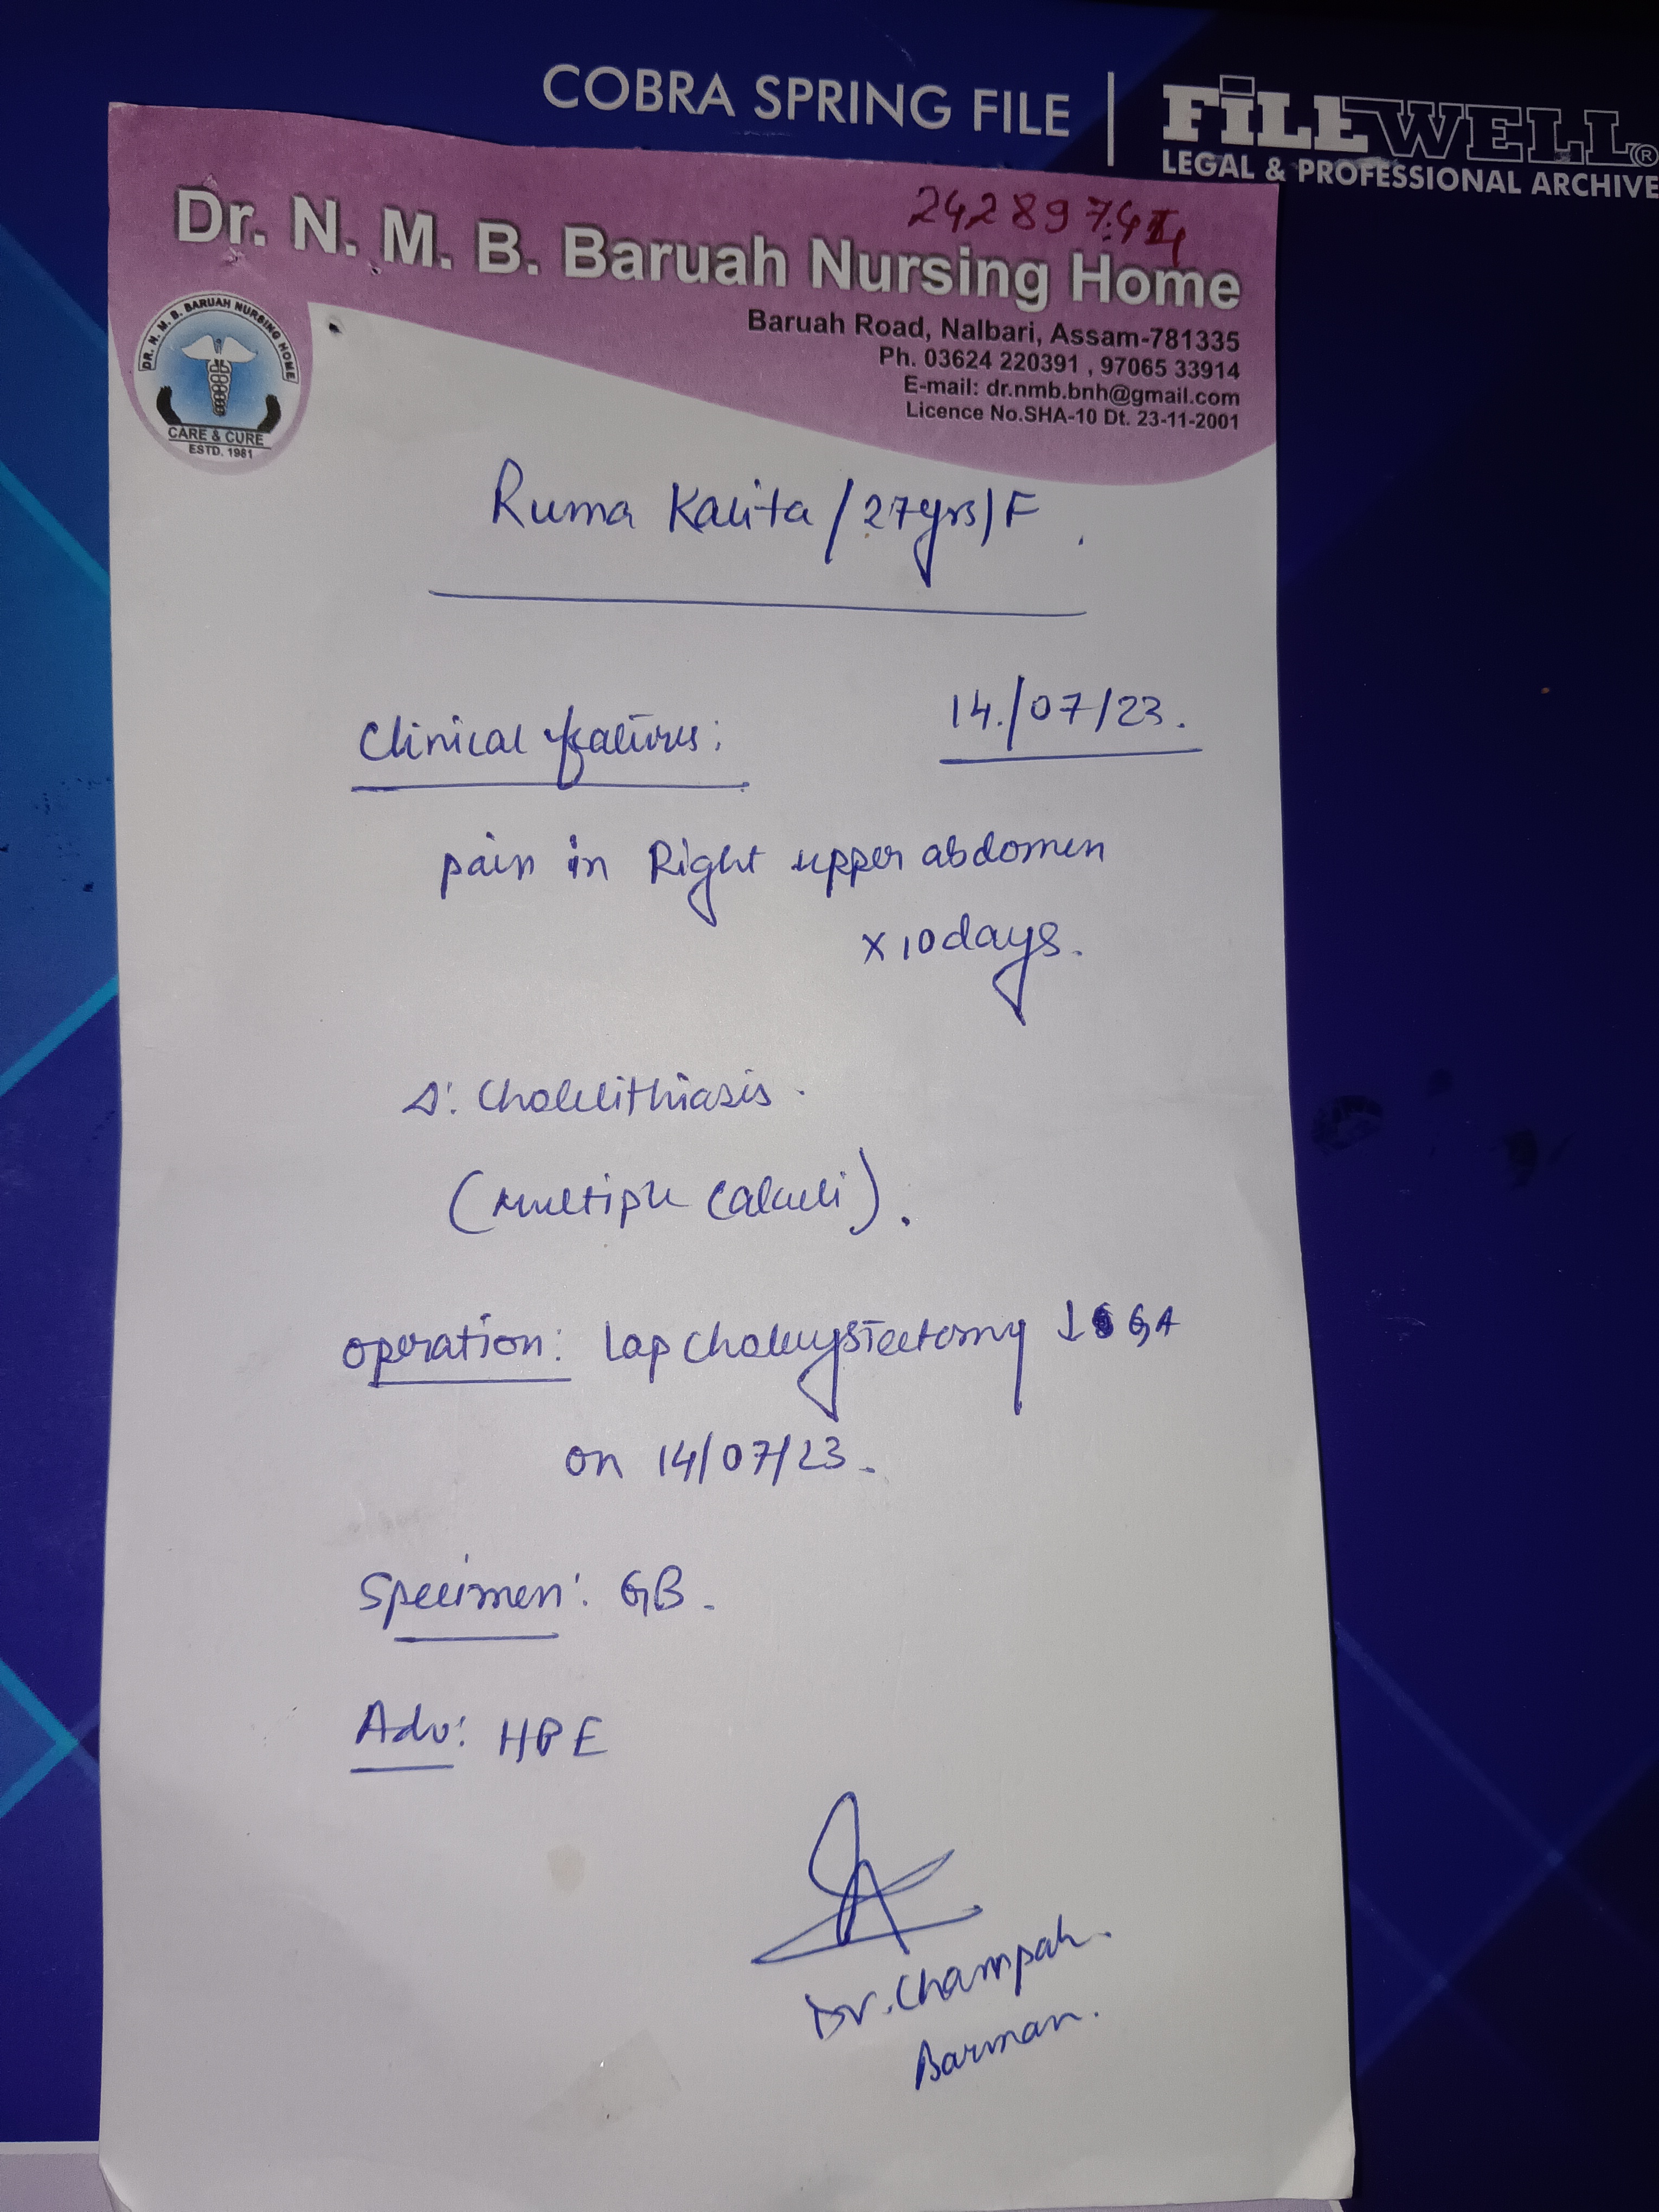 COBRA SPRING FILE
FiLEWELL®
LEGAL & PROFESSIONAL ARCHIVE
Dr. N. M. B. Baruah Nursing Home
Baruah Road, Nalbari, Assam-781335
Ph. 03624 220391 , 97065 33914
E-mail: dr.nmb.bnh@gmail.com
Licence No.SHA-10 Dt. 23-11-2001
DR. N. M. B. BARUAH NURSING HOME
CARE & CURE
ESTD. 1981
Ruma Kalita / 27yrs / F
14/07/23.
Clinical features:
pain in Right upper abdomen
x 10 days.
Δ: Cholelithiasis.
(Multiple Calculi).
Operation: Lap cholecystectomy ↓ GA
on 14/07/23.
Specimen: GB.
Adv: HPE
Dr. Champak
Barman.